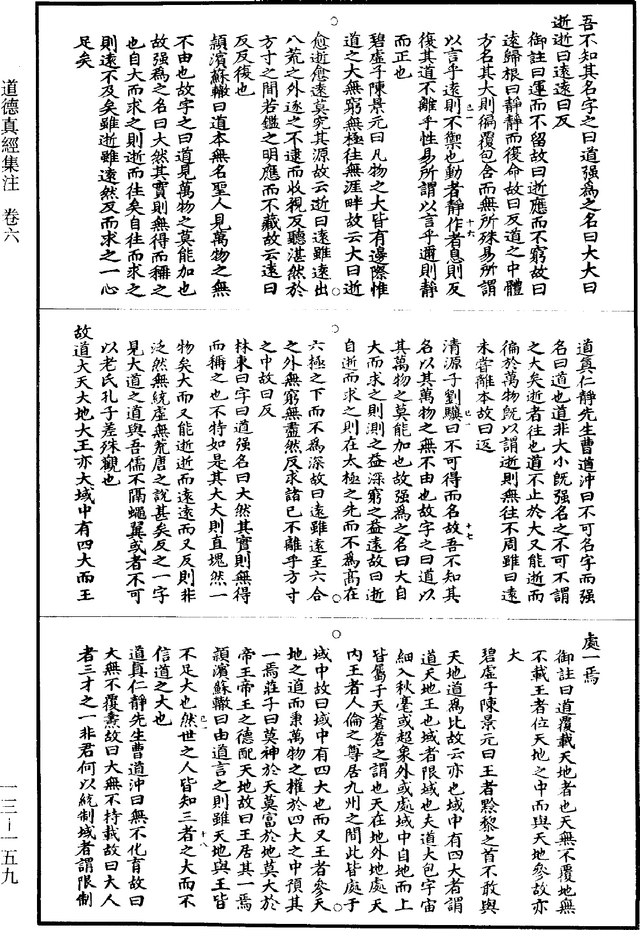 吾不知其名字之曰道强為之名曰大大曰
逝逝曰遠遠曰反
御註曰運而不留故曰逝應而不窮故曰
遠歸根曰靜靜而復命故曰反道之中體
方名其大則徧覆包含而無所殊易所謂
以言乎遠則不禦也動者靜作者息則反
復其道不離乎性易所謂以言乎邇則靜
而正也
碧虛子陳景元曰凡物之大皆有邊際惟
道之大無窮無極往無涯畔故云大曰逝
愈逝愈遠莫究其源故云逝曰遠雖遠出
八荒之外逐之不逮而收視反聽湛然於
方寸之間若鑑之明應而不藏故云遠曰
反反復也
頴濱蘇轍曰道本無名聖人見萬物之無
不由也故字之曰道見萬物之莫能加也
故强為之名曰大然其實則無得而稱之
也自大而求之則逝而往矣自往而求之
則遠不及矣雖逝雖遠然反而求之一心
足矣
道真仁靜先生曹道沖曰不可名字而强
名曰道也道非大小既强名之不可不謂
之大矣逝者往也道不止於大又能逝而
徧於萬物既以謂逝則無往不周雖曰遠
未甞離本故曰返
清源子劉驥曰不可得而名故吾不知其
名以其萬物之無不由也故字之曰道以
其萬物之莫能加也故强為之名曰大自
大而求之則測之益深窮之益遠故曰逝
自逝而求之則在太極之先而不為高在
六極之下而不為深故曰遠雖遠至六合
之外無窮無盡然反求諸己不離乎方寸
之中故曰反
林東曰字曰道强名曰大然其實則無得
而稱之也不特如是其大大則直塊然一
物矣大而又能逝逝而遠遠而又反則非
泛然無統虛無荒唐之說甚矣反之一字
見大道之道與吾儒不隔蠅翼或者不可
以老氏孔子差殊觀也
故道大天大地大王亦大域中有四大而王
處一焉
御註曰道覆載天地者也天無不覆地無
不載王者位天地之中而與天地參故亦
大
碧虛子陳景元曰王者黔黎之首不敢與
天地道為比故云亦也域中有四大者謂
道天地王也域者限域也夫道大包宇宙
細入秋毫或超象外或處域中自地而上
皆屬于天蒼蒼之謂也天在地外地處天
內王者人倫之尊居九州之間此皆處于
域中故曰域中有四大也而又王者參天
地之道而秉萬物之權於四大之中預其
一焉莊子曰莫神於天莫富於地莫大於
帝王帝王之德配天地故曰王居其一焉
頴濱蘇轍曰由道言之則雖天地與王皆
不足大也然世之人皆知三者之大而不
信道之大也
道真仁靜先生曹道沖曰無不化育故曰
大無不覆燾故曰大無不持載故曰大人
者三才之一非君何以統制域者謂限制
道德真經集注 卷六
一三-一五九
已一
十六
已一
十七
已一
十八